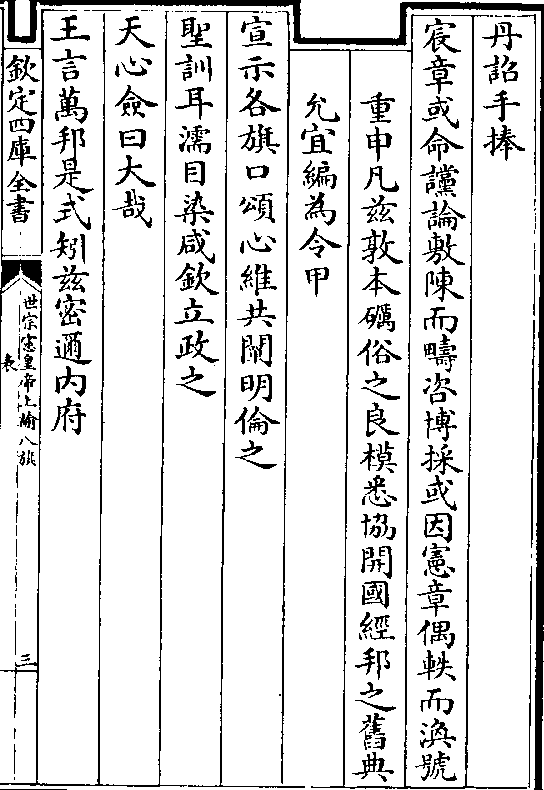 丹詔手捧
宸章或命讜論敷陳而疇咨博採或因憲章偶軼而渙號
重申凡兹敦本礪俗之良模悉協開國經邦之舊典
允宜編為令甲
宣示各旗口頌心維共闡明倫之
聖訓耳濡目染咸欽立政之
天心僉曰大哉
王言萬邦是式矧兹密邇内府
欽定四庫全書
世宗憲皇帝上諭八旗
表
三